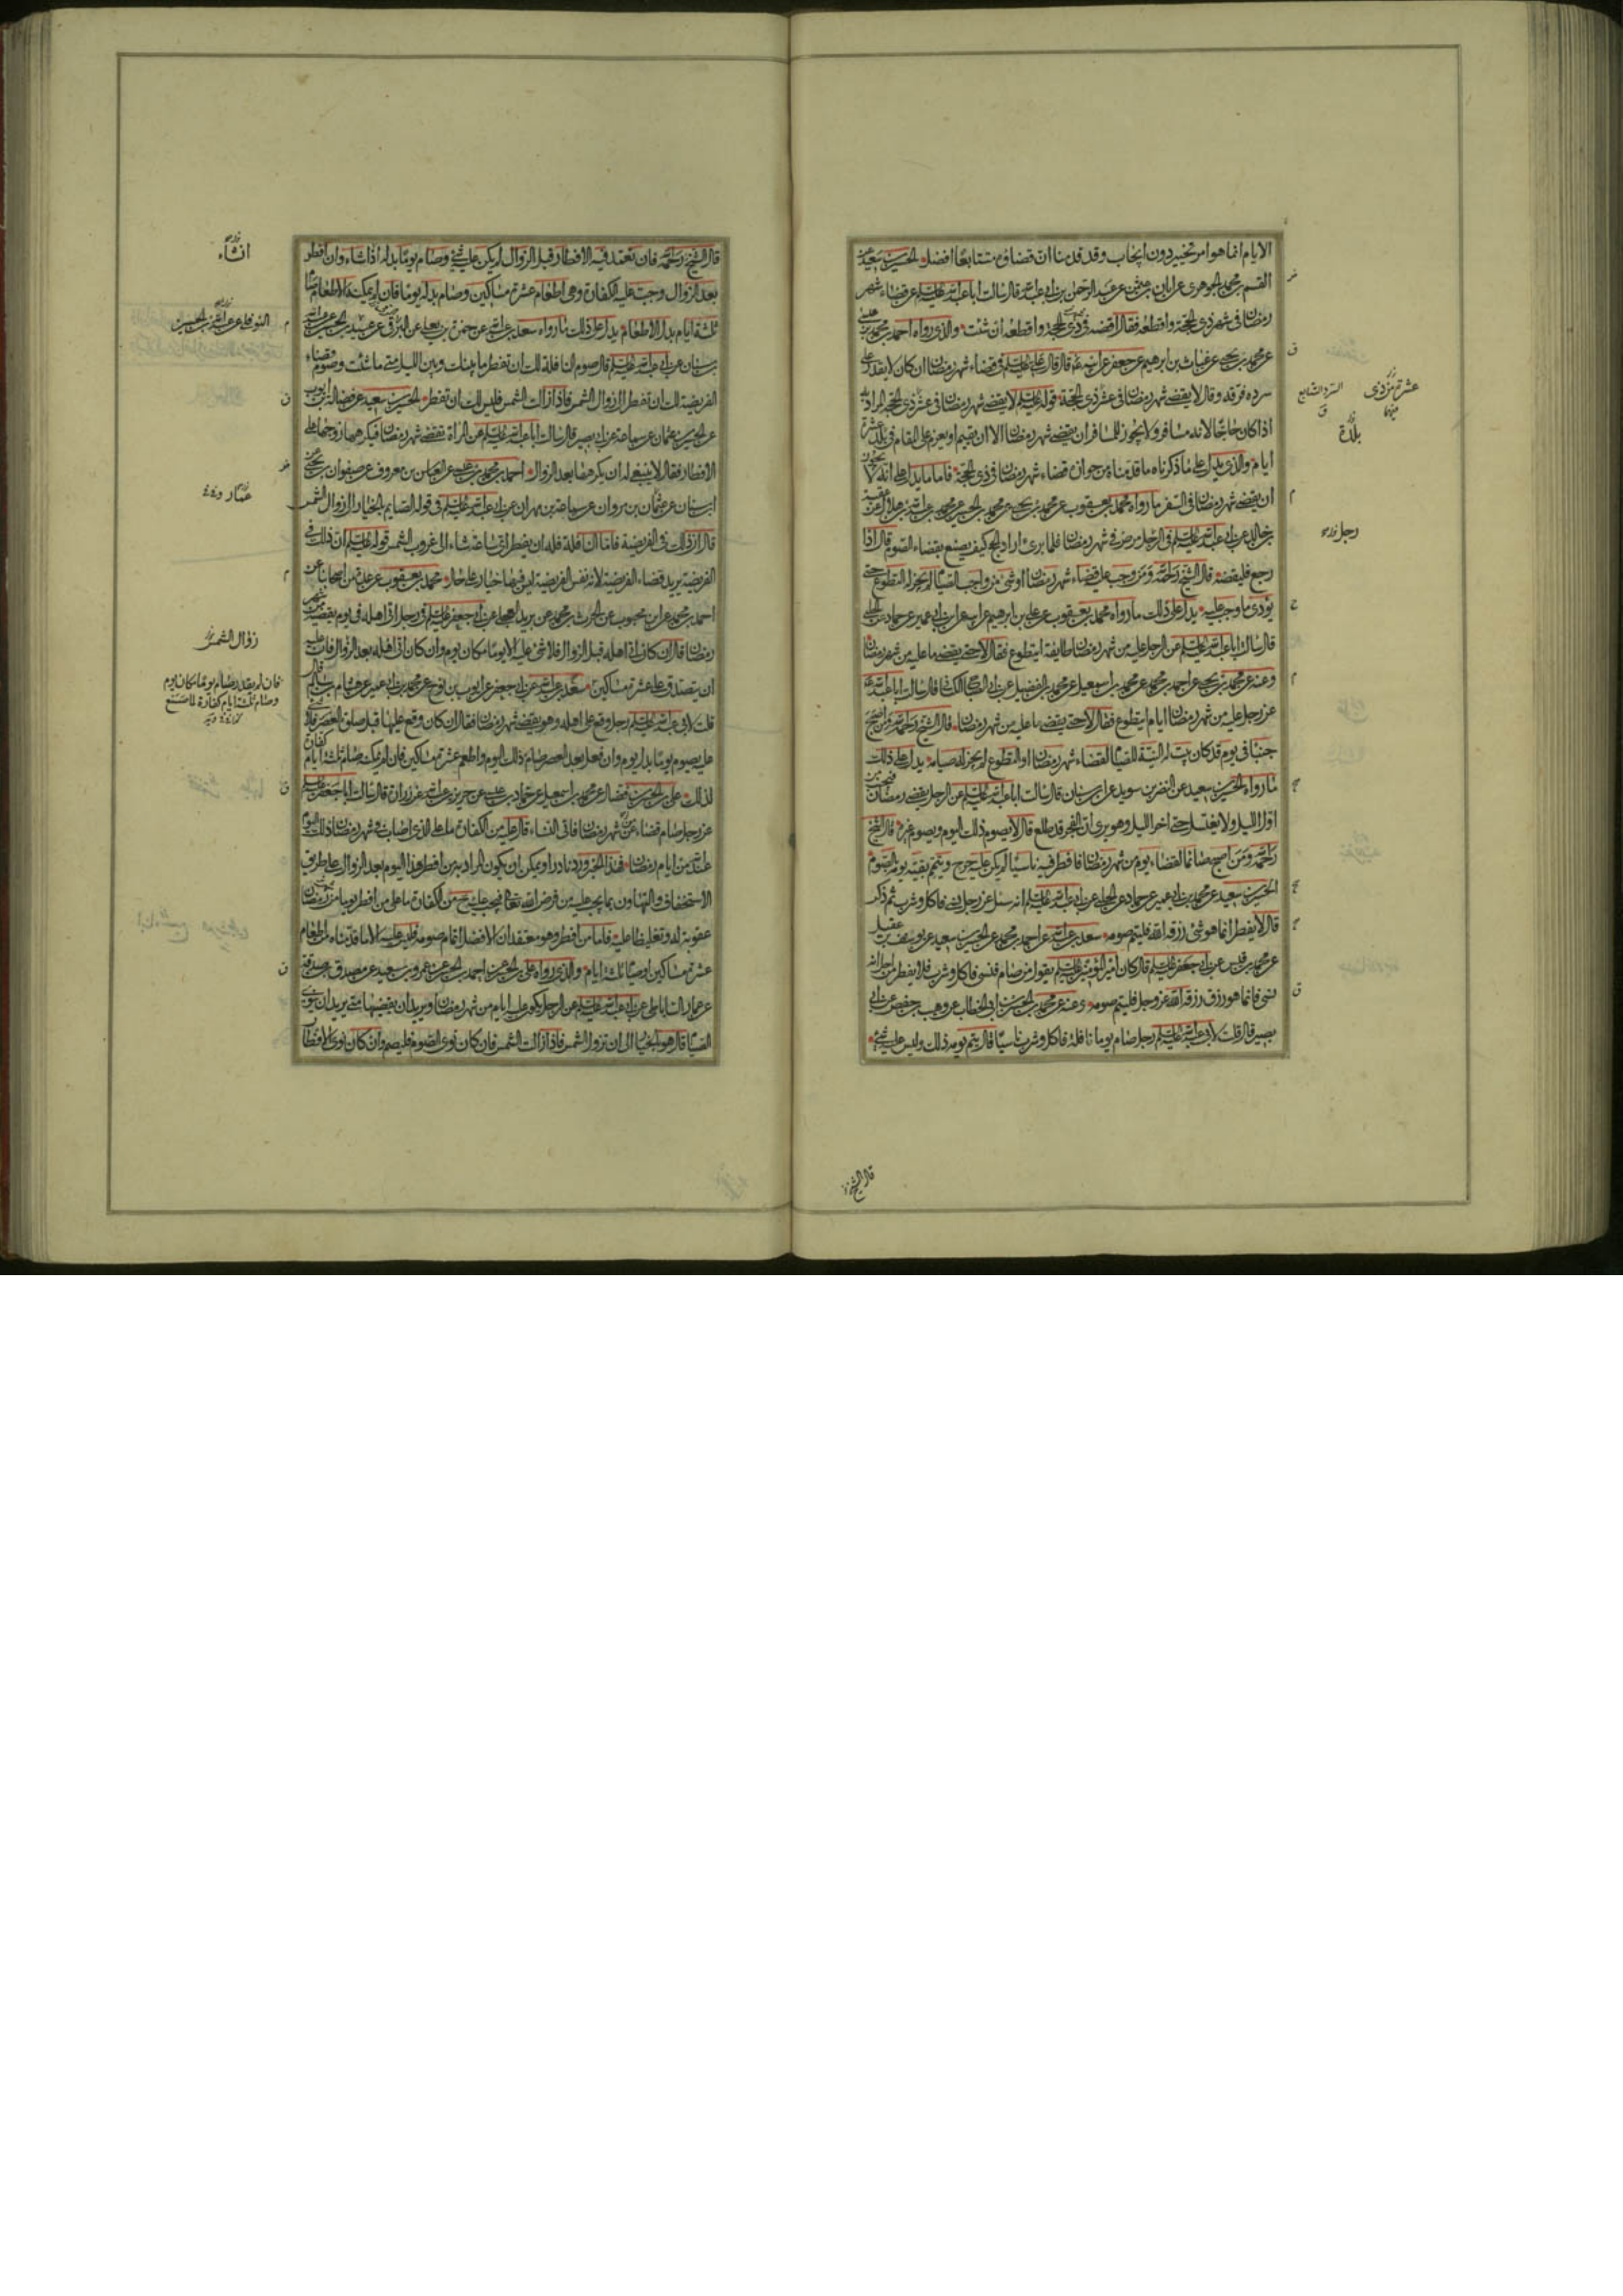 الايام انما هو امر تخيير دون ايجاب وقد قدمنا ان قضاؤه متتابعا افضل الحسين بن سعيد عن
القسم بن محمد الجوهري عن ابان بن عثمن عن عبد الرحمن بن ابي عبد الله قال سالت ابا عبد الله عليه السلم عن قضاء شهر
رمضان في شهر ذي الحجة واقطعه فقال اقضه في ذي الحجة واقطعه ان شئت والذي رواه احمد بن محمد بن عيسى
عن محمد بن يحيى عن غياث بن ابرهيم عن جعفر عن ابيه قال قال علي عليه السلم في قضاء شهر رمضان ان كان لا يقدر على
سرده فرقه وقال لا يقضى شهر رمضان في عشر ذي الحجة قوله عليه السلم لا يقضى شهر رمضان في عشر ذي الحجة المراد به
اذا كان حاجا لانه مسافر ولا يجوز للمسافر ان يقضي شهر رمضان الا ان يقيم او يعزم على المقام في بلد عشرة
ايام والذي يدل على ما ذكرناه ما قدمناه من جواز قضاء شهر رمضان في ذي الحجة فاما ما يدل على انه لا يجوز
ان يقضي شهر رمضان في السفر ما رواه محمد بن يعقوب عن محمد بن يحيى عن محمد بن الحسين عن محمد بن عبد الله بن هلال عن عقبة
بن خالد عن ابي عبد الله عليه السلم في الرجل مرض في شهر رمضان فلما برئ اراد الحج كيف يصنع بقضاء الصوم قال اذا
رجع فليقضه قال الشيخ رحمه الله ومن وجب عليه قضاء شهر رمضان او شئ من واجب الصيام لم يجز له التطوع حتى
يؤدي ما وجب عليه يدل على ذلك ما رواه محمد بن يعقوب عن علي بن ابرهيم عن ابيه عن ابن ابي عمير عن حماد عن الحلبي
قال سالت ابا عبد الله عليه السلم عن الرجل عليه من شهر رمضان طايفة ايتطوع فقال لا حتى يقضي ما عليه من شهر رمضان
وعنه عن محمد بن يحيى عن احمد بن محمد عن محمد بن اسمعيل عن محمد بن الفضيل عن ابي الصباح الكناني قال سالت ابا عبد الله
عن رجل عليه من شهر رمضان ايام ايتطوع فقال لا حتى يقضي ما عليه من شهر رمضان قال الشيخ رحمه الله ومن اصبح
جنبا في يوم قد كان بيت له النية للصيام لقضاء شهر رمضان او التطوع لم يجز له صيامه يدل على ذلك
ما رواه الحسين بن سعيد عن النضر بن سويد عن ابن سنان قال سالت ابا عبد الله عليه السلم عن الرجل يقضي رمضان فيجنب من
اول الليل ولا يغتسل حتى اخر الليل وهو يرى ان الفجر قد طلع قال لا يصوم ذلك اليوم ويصوم غيره قال الشيخ
رحمه الله ومن اصبح صائما لقضاء يوم من شهر رمضان فافطر فيه ناسيا لم يكن عليه حرج ويتم بقية يومه بالصوم
الحسين بن سعيد عن محمد بن ابي عمير عن حماد عن الحلبي عن ابي عبد الله عليه السلم انه سئل عن رجل نسي فاكل وشرب ثم ذكر
قال لا يفطر انما هو شئ رزقه الله فليتم صومه سعد بن عبد الله عن احمد بن محمد عن الحسين بن سعيد عن يوسف بن عقيل
عن محمد بن قيس عن ابي جعفر عليه السلم قال كان امير المؤمنين عليه السلم يقول من صام فنسي فاكل وشرب فلا يفطر من اجل انه
نسي فانما هو رزق رزقه الله عز وجل فليتم صومه وعنه عن محمد بن الحسين بن ابي الخطاب عن وهيب بن حفص عن ابي
بصير قال قلت لابي عبد الله عليه السلم رجل صام يوما نافلة فاكل وشرب ناسيا قال يتم يومه ذلك وليس عليه شئ
عشر من ذي
بلدة
رجل
قال الشيخ
قال الشيخ رحمه الله فان تعمد فيه الافطار قبل الزوال لم يكن عليه شئ وصام يوما بدله اذا شاء وان افطر
بعد الزوال وجبت عليه الكفارة وهي اطعام عشرة مساكين وصام بدله يوما فان لم يمكنه الاطعام صام
ثلثة ايام بدل الاطعام يدل على ذلك ما رواه سعد بن عبد الله عن حمزة بن يعلى عن البرقي عن عبيد بن الحسين عن عبد الله
بن سنان عن ابي عبد الله عليه السلم قال صوم النافلة لك ان تفطر ما بينك وبين الليل متى ما شئت وصوم قضاء
الفريضة لك ان تفطر الى زوال الشمس فاذا زالت الشمس فليس لك ان تفطر الحسين بن سعيد عن فضالة بن ايوب
عن الحسين بن عثمان عن سماعة عن ابي بصير قال سالت ابا عبد الله عليه السلم عن المراة تقضي شهر رمضان فيكرهها زوجها على
الافطار فقال لا ينبغي له ان يكرهها بعد الزوال احمد بن محمد بن عيسى عن العباس بن معروف عن صفوان بن يحيى عن
ابن سنان عن عثمان بن مروان عن سماعة بن مهران عن ابي عبد الله عليه السلم في قوله الصايم بالخيار الى زوال الشمس
قال ان ذلك في الفريضة فاما النافلة فله ان يفطر اي ساعة شاء الى غروب الشمس قوله عليه السلم ان ذلك في
الفريضة يريد قضاء الفريضة لان نفس الفريضة ليس فيها خيار على حال محمد بن يعقوب عن عدة من اصحابنا عن
احمد بن محمد عن ابن محبوب عن الحرث بن محمد عن بريد العجلي عن ابي جعفر عليه السلم في رجل اتى اهله في يوم يقضيه من شهر
رمضان قال ان كان اتى اهله قبل الزوال فلا شئ عليه الا يوما مكان يوم وان كان اتى اهله بعد الزوال فان عليه
ان يتصدق على عشرة مساكين سعد بن عبد الله عن ابي جعفر عن ايوب بن نوح عن محمد بن ابي عمير عن هشام بن سالم قال
قلت لابي عبد الله عليه السلم رجل وقع على اهله وهو يقضي شهر رمضان فقال ان كان وقع عليها قبل صلوة العصر فلا شئ
عليه يصوم يوما بدل يوم وان فعل بعد العصر صام ذلك اليوم واطعم عشرة مساكين فان لم يمكنه صام ثلثة ايام كفارة
لذلك علي بن الحسن بن فضال عن محمد بن اسمعيل عن حماد بن عيسى عن حريز بن عبد الله عن زرارة قال سالت ابا جعفر عليه السلم
عن رجل صام قضاء من شهر رمضان فاتى النساء قال عليه من الكفارة ما على الذي اصاب في شهر رمضان ذلك اليوم
عند الله من ايام رمضان فهذا الخبر ورد نادرا ويمكن ان يكون المراد به من افطر هذا اليوم بعد الزوال على طريق
الاستخفاف والتهاون بما يجب عليه من فرض الله تعالى فيجب عليه حينئذ من الكفارة ما على من افطر يوما من رمضان
عقوبة له وتغليظا عليه فاما من افطر وهو معتقد ان الافضل اتمام صومه فليس عليه الا ما قدمناه من اطعام
عشرة مساكين او صيام ثلثة ايام والذي رواه علي بن الحسن عن احمد بن الحسن عن عمرو بن سعيد عن مصدق بن صدقة
عن عمار الساباطي عن ابي عبد الله عليه السلم عن الرجل يكون عليه ايام من شهر رمضان ويريد ان يقضيها متى يريد ان ينوي
الصيام قال هو بالخيار الى ان تزول الشمس فاذا زالت الشمس فان كان نوى الصوم فليصم وان كان نوى الافطار
ان شاء
النوفلي عن عبد الله بن الحسين
عمار
زوال الشمس
فان لم يقدر صام يوما مكان يوم
وصام ثلثة ايام كفارة لما صنع